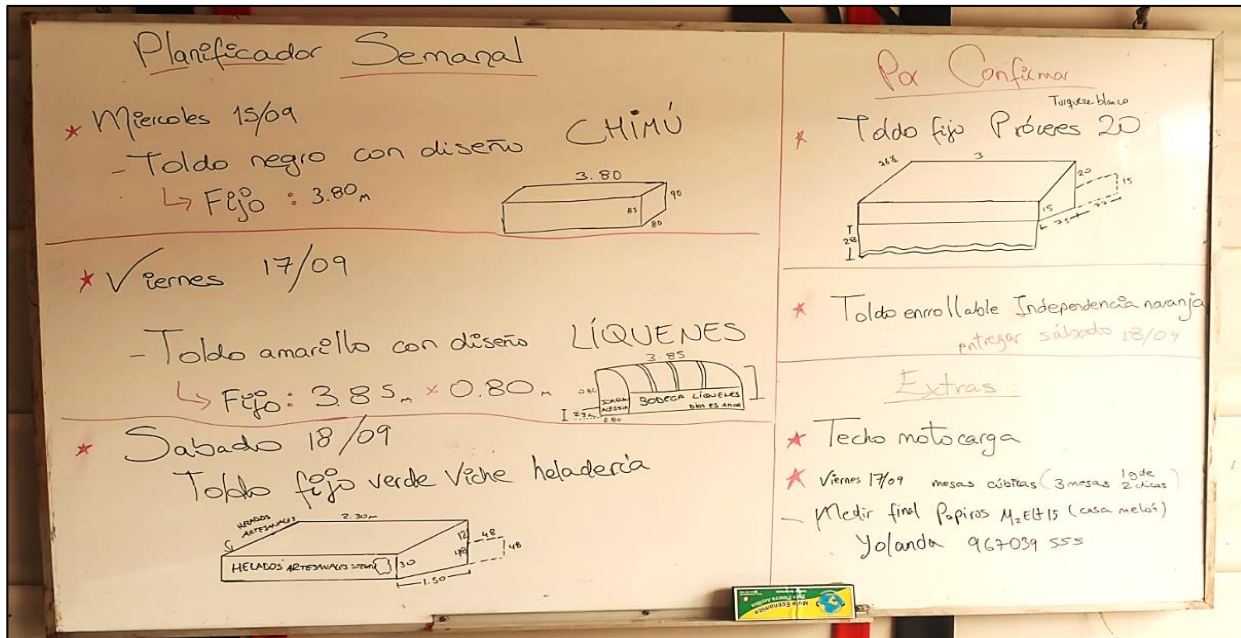 Planificador Semanal
* Miercoles 15/09
- Toldo negro con diseño CHIMÚ
↳ Fijo : 3.80m
3.80
90
85
80
* Viernes 17/09
- Toldo amarillo con diseño LÍQUENES
↳ Fijo: 3.85m × 0.80m
3.85
0.80
BODEGA LÍQUENES
0.80
* Sabado 18/09
Toldo fijo verde Viche heladería
HELADOS
ARTESANALES
2.30m
12
48
48
48
HELADOS ARTESANALES
30
1.50
Por Confirmar
Turqueza blanco
* Toldo fijo Próceres 20
3
20
15
15
28
* Toldo enrollable Independencia naranja
entregar sábado 18/09
Extras
* Techo motocarga
* Viernes 17/09 mesas cúbicas (3 mesas 1 gde
2 chicas)
- Medir final Papiros (casa melón)
Yolanda 967039 555